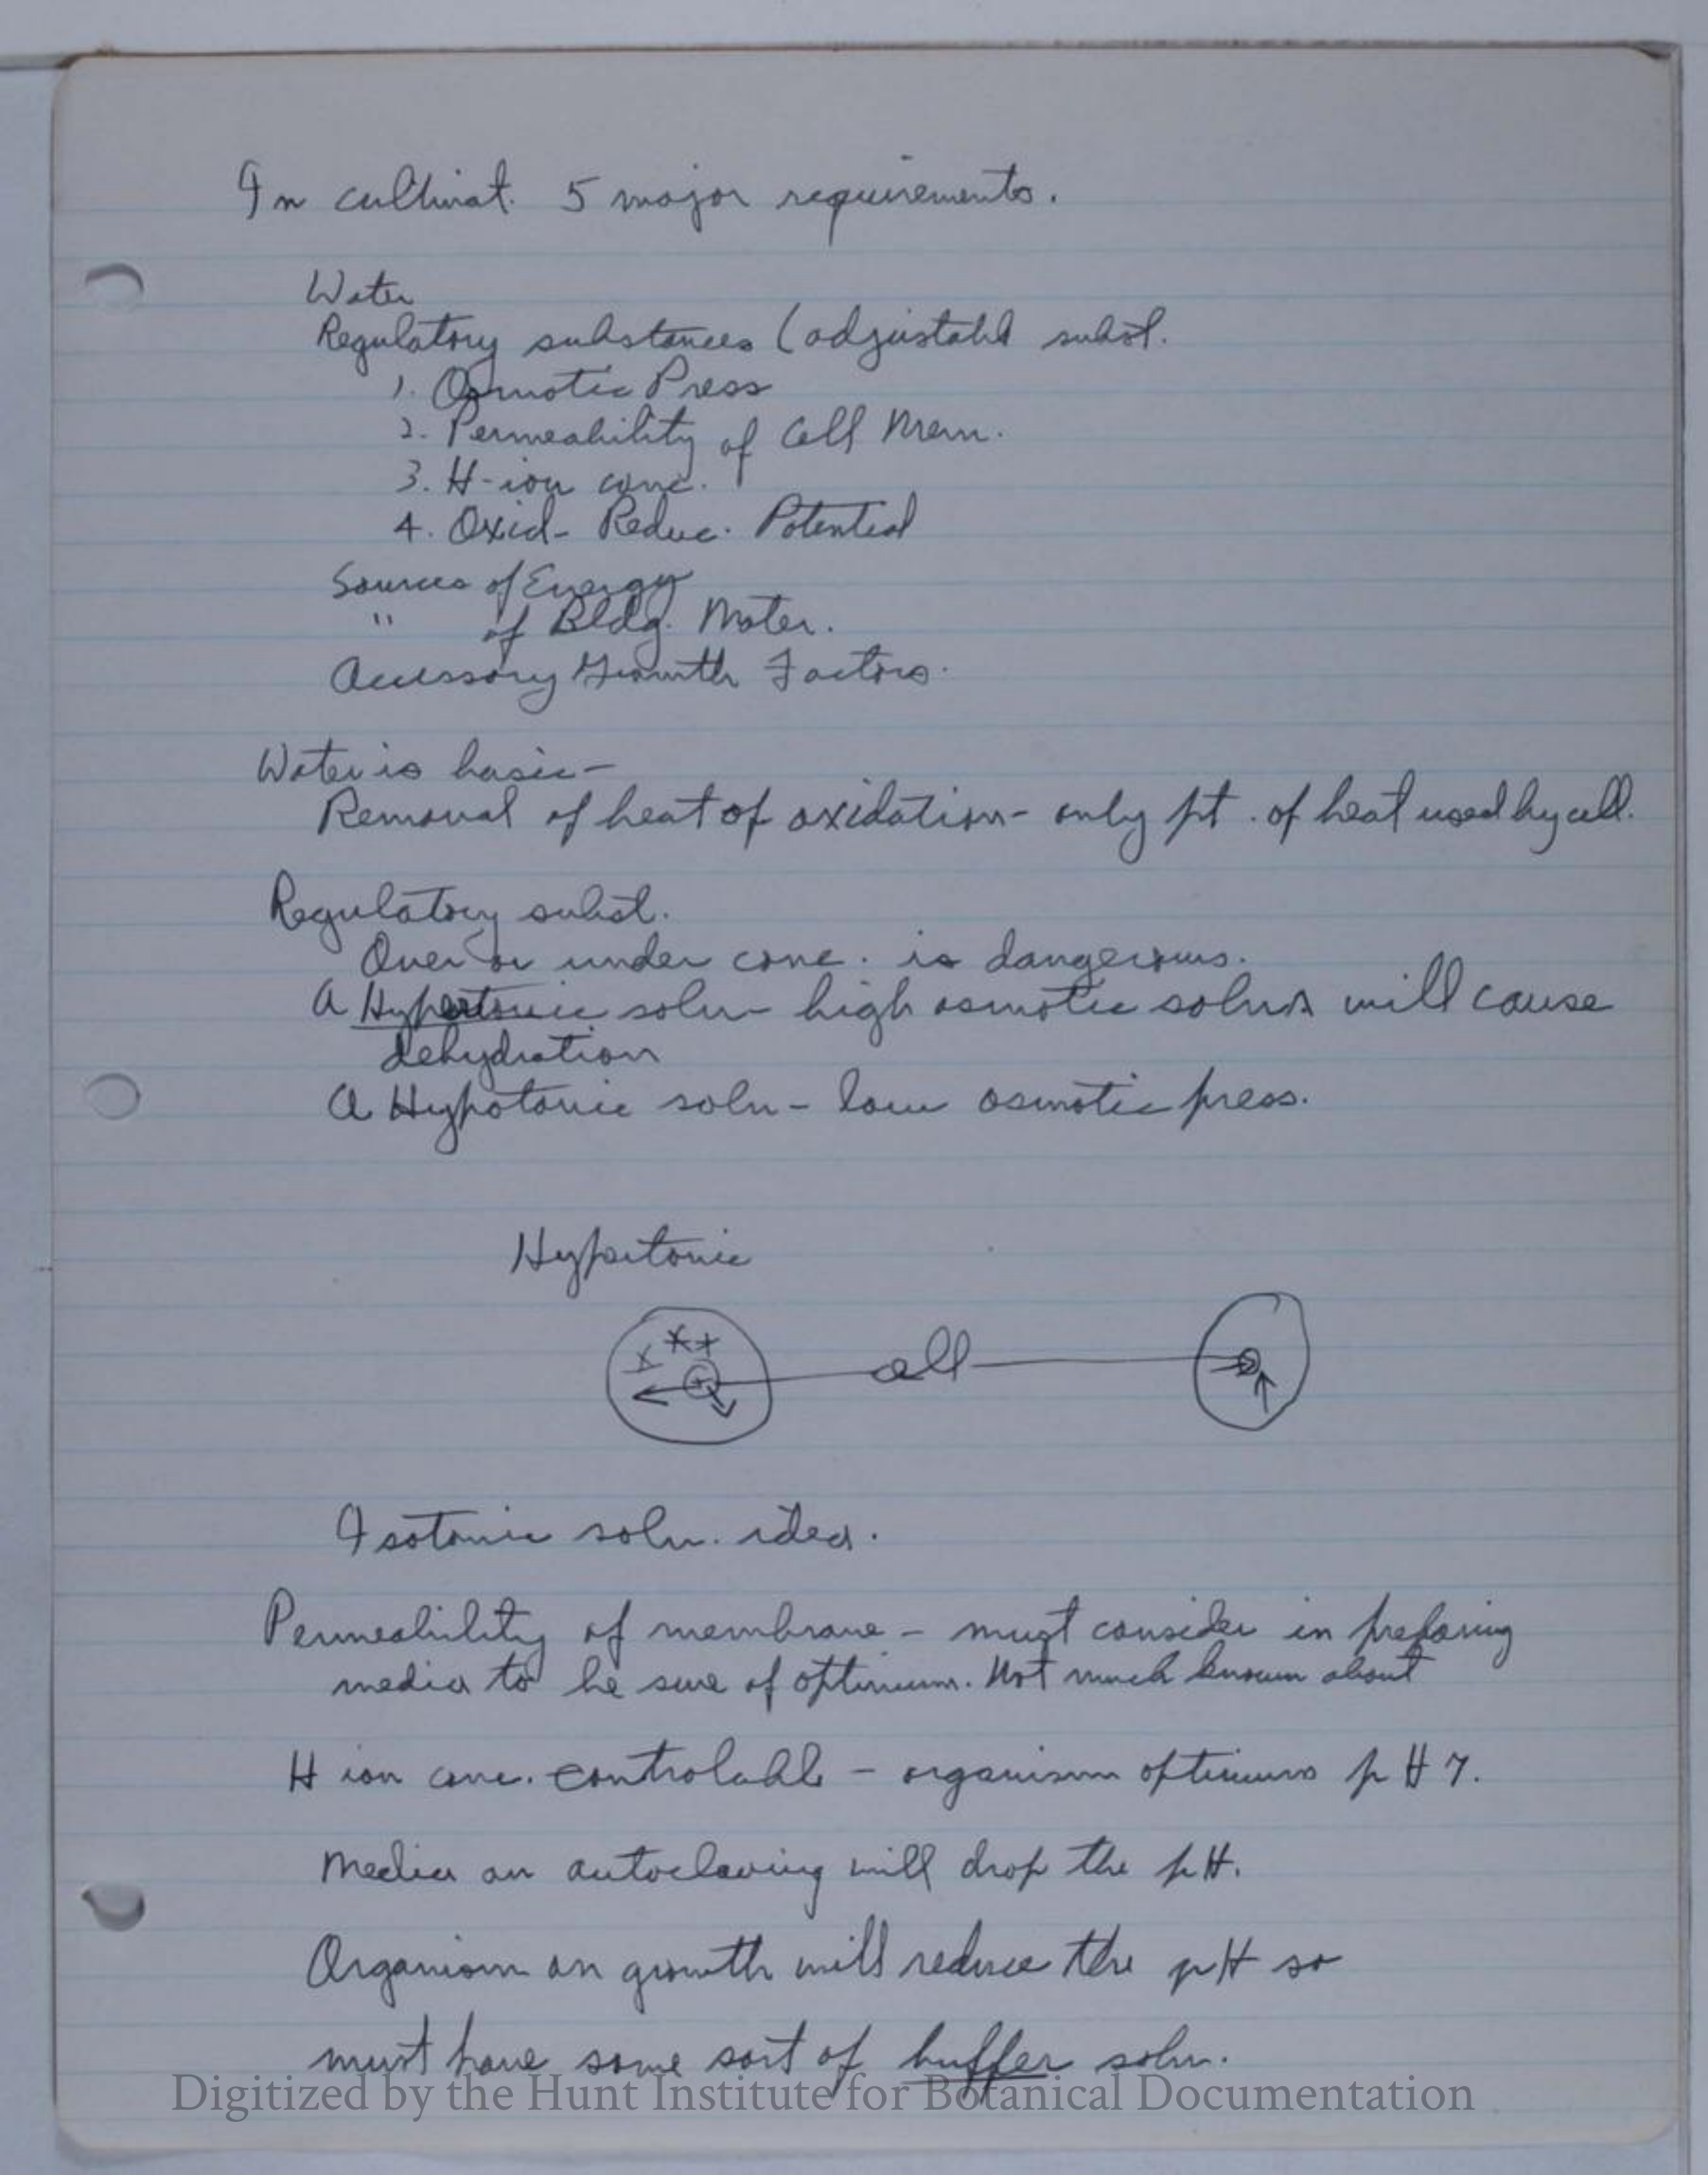 In cultivat. 5 major requirements.
Water
Regulatory substances (adjustabl subst.
1. Osmotic Press
2. Permeability of Cell Mem.
3. H-ion conc.
4. Oxid- Reduc. Potential
Sources of Energy
" of Bldg. Mater.
Accessory Growth Factors.
Water is basic-
Removal of heat of oxidation - only pt. of heat used by cell.
Regulatory subst.
Over or under conc. is dangerous.
A Hypertonic soln - high osmotic solns will cause
dehydration
A Hypotonic soln - low osmotic press.
Hypertonic
cell
Isotonic soln. idea.
Permeability of membrane - must consider in preparing
media to be sure of optimum. Not much known about
H ion conc. controlable - organism optimums pH 7.
Media on autoclaving will drop the pH.
Organism on growth will reduce the pH so
must have some sort of buffer soln.
Digitized by the Hunt Institute for Botanical Documentation